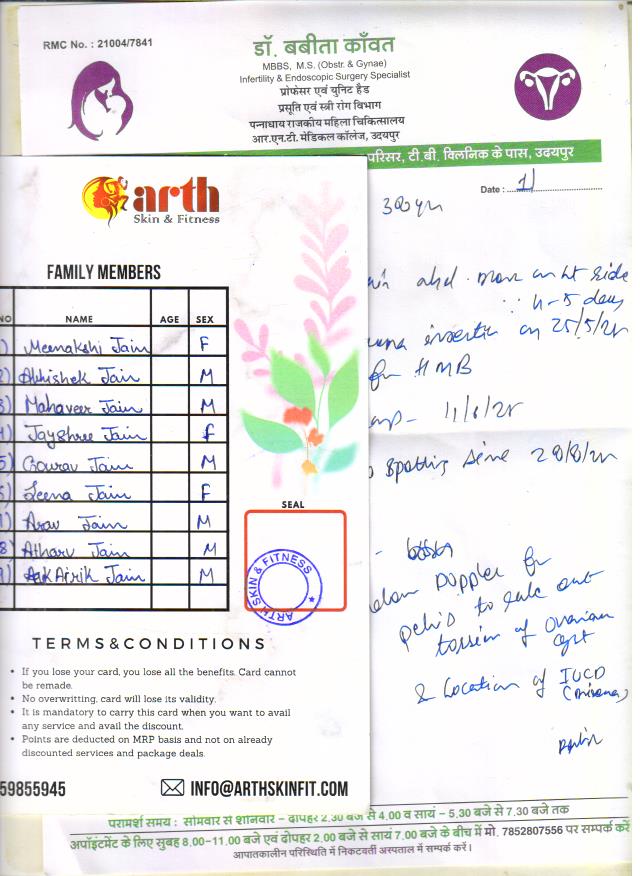 RMC No. : 21004/7841
डॉ. बबीता काँवत
MBBS, M.S. (Obstr. & Gynae)
Infertility & Endoscopic Surgery Specialist
प्रोफेसर एवं युनिट हैड
प्रसूति एवं स्त्री रोग विभाग
पन्नाधाय राजकीय महिला चिकित्सालय
आर.एन.टी. मेडिकल कॉलेज, उदयपुर
परिसर, टी.बी. क्लिनिक के पास, उदयपुर
Date :
arth
Skin & Fitness
FAMILY MEMBERS
NO NAME AGE SEX
Meenakshi Jain F
Abhishek Jain M
Mahaveer Jain M
Jayshree Jain F
Gourav Jain M
Leena Jain F
Arav Jain M
8) Atharv Jain M
Jain M
SEAL
ARTH SKIN & FITNESS
side
4-5 days
insertion on 25/5/21
for HMB
spotting since 28/8/21
Doppler for
pelvis to rule out
torsion of ovarian
cyst
& Location of IUCD
(mirena)
TERMS&CONDITIONS
• If you lose your card, you lose all the benefits. Card cannot
be remade.
• No overwritting, card will lose its validity.
• It is mandatory to carry this card when you want to avail
any service and avail the discount.
• Points are deducted on MRP basis and not on already
discounted services and package deals.
59855945
INFO@ARTHSKINFIT.COM
परामर्श समय : सोमवार से शनिवार – दोपहर 2.30 बजे से 4.00 व सायं – 5.30 बजे से 7.30 बजे तक
अपॉइंटमेंट के लिए सुबह 8.00-11.00 बजे एवं दोपहर 2.00 बजे से सायं 7.00 बजे के बीच में मो. 7852807556 पर सम्पर्क करें
आपातकालीन परिस्थिति में निकटवर्ती अस्पताल में सम्पर्क करें।